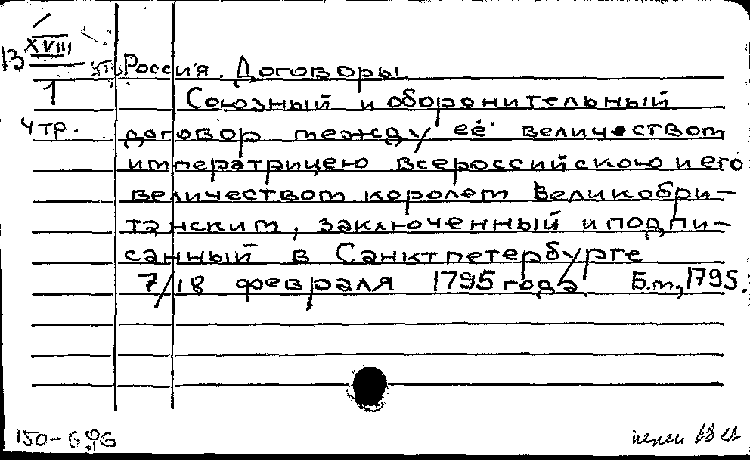 XVIII
13
1
4 тр.
Россия. Договоры.
Союзный и оборонительный
договор между её величеством
императрицею всероссийскою и его
величеством королем Великобри-
танским, заключенный и подпи-
санный в Санктпетербурге
7/18 февраля 1795 года. Б.м., 1795.
150-696